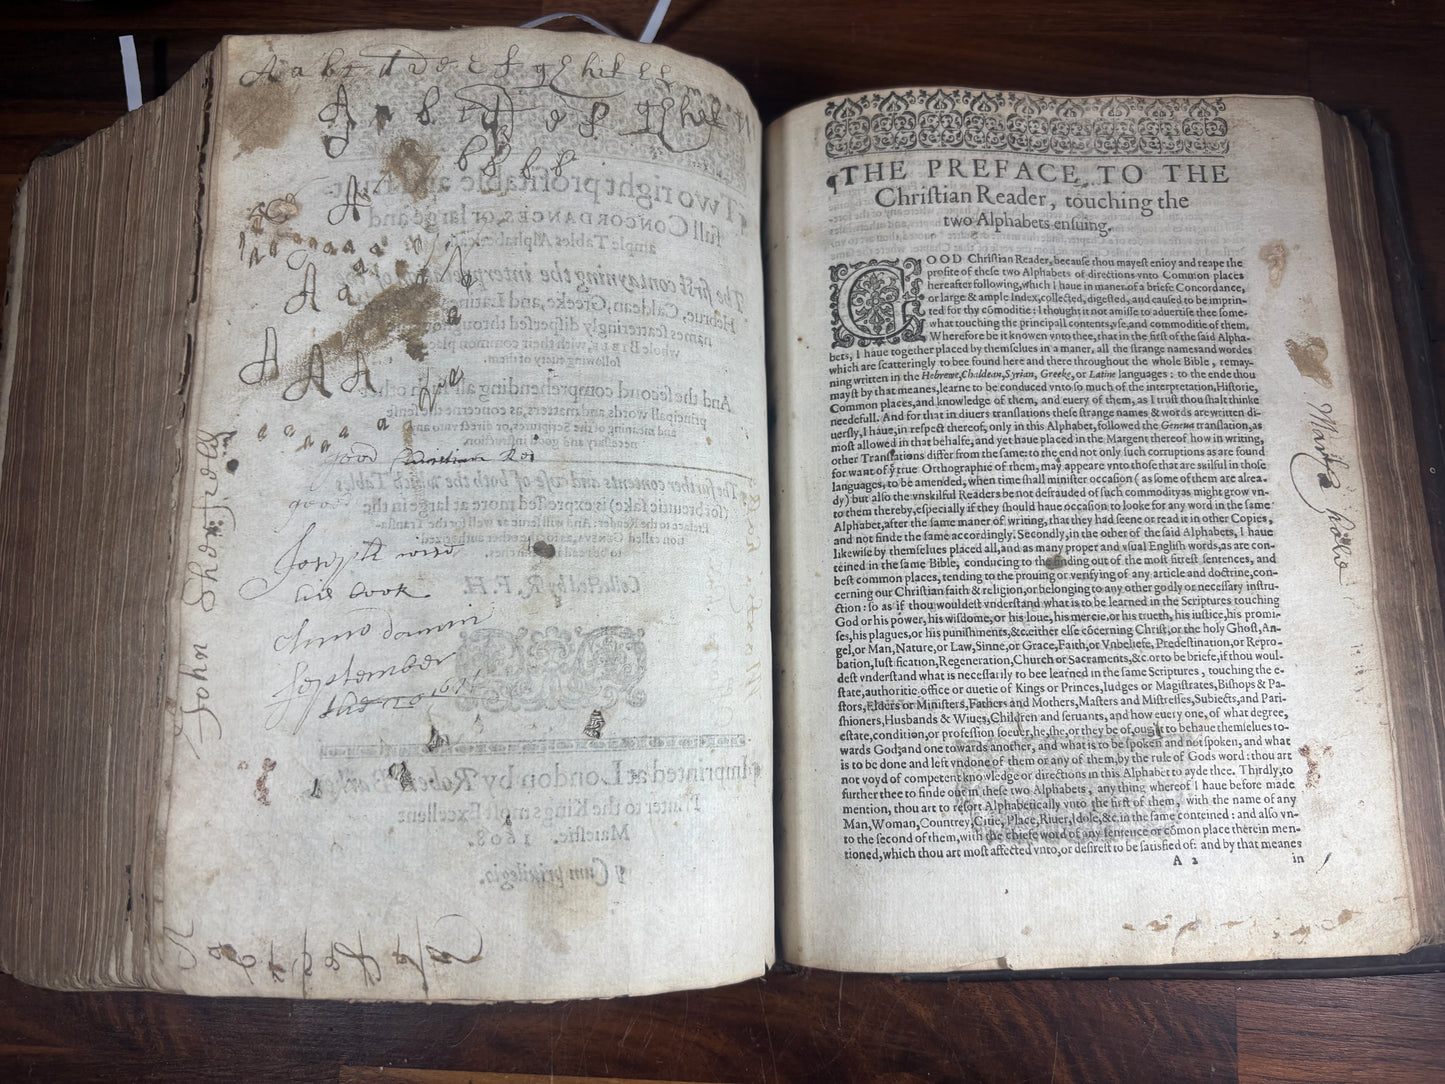 A a b c d d e E f g h h i k l l
A a b c d d e f g h i k
b b b b b
A
a a a a a a a
A a a a
A A A A
a a a a a a
good Christian Rea
good
Joseph
his book
Anno domini
September
John Sharford
THE PREFACE TO THE
Chriſtian Reader, touching the
two Alphabets enſuing.
GOOD Chriſtian Reader, becauſe thou mayeſt enioy and reape the
profite of theſe two Alphabets of directions vnto Common places
hereafter following, which I haue in maner of a briefe Concordance,
or large & ample Index, collected, digeſted, and cauſed to be imprin-
ted for thy cōmoditie: I thought it not amiſſe to aduertiſe thee ſome-
what touching the principall contents, vſe, and commoditie of them.
Wherefore be it knowen vnto thee, that in the firſt of the ſaid Alpha-
bets, I haue together placed by themſelues in a maner, all the ſtrange names and wordes
which are ſcatteringly to bee found here and there throughout the whole Bible, remay-
ning written in the Hebrewe, Chaldean, Syrian, Greeke, or Latine languages: to the ende thou
mayſt by that meanes, learne to be conduced vnto ſo much of the interpretation, Hiſtorie,
Common places, and knowledge of them, and euery of them, as I truſt thou ſhalt thinke
needefull. And for that in diuers tranſlations theſe ſtrange names & words are written di-
uerſly, I haue, in reſpect thereof, only in this Alphabet, followed the Geneua tranſlation, as
moſt allowed in that behalfe, and yet haue placed in the Margent thereof how in writing,
other Tranſlations differ from the ſame: to the end not only ſuch corruptions as are found
for want of ẙ true Orthographie of them, may appeare vnto thoſe that are skilful in thoſe
languages, to be amended, when time ſhall miniſter occaſion (as ſome of them are alrea-
dy) but alſo the vnskilful Readers be not defrauded of ſuch commodity as might grow vn-
to them thereby, eſpecially if they ſhould haue occaſion to looke for any word in the ſame
Alphabet, after the ſame maner of writing, that they had ſeene or read it in other Copies,
and not finde the ſame accordingly. Secondly, in the other of the ſaid Alphabets, I haue
likewiſe by themſelues placed all, and as many proper and vſual Engliſh words, as are con-
teined in the ſame Bible, conducing to the finding out of the moſt fitteſt ſentences, and
beſt common places, tending to the prouing or verifying of any article and doctrine, con-
cerning our Chriſtian faith & religion, or belonging to any other godly or neceſſary inſtru-
ction: ſo as if thou wouldeſt vnderſtand what is to be learned in the Scriptures touching
God or his power, his wiſdome, or his loue, his mercie, or his trueth, his iuſtice, his promi-
ſes, his plagues, or his puniſhments, &c. either elſe cōcerning Chriſt, or the holy Ghoſt, An-
gel, or Man, Nature, or Law, Sinne, or Grace, Faith, or Vnbeliefe, Predeſtination, or Repro-
bation, Iuſtification, Regeneration, Church or Sacraments, &c. or to be briefe, if thou woul-
deſt vnderſtand what is neceſſarily to bee learned in the ſame Scriptures, touching the e-
ſtate, authoritie, office or duetie of Kings or Princes, Iudges or Magiſtrates, Biſhops & Pa-
ſtors, Elders or Miniſters, Fathers and Mothers, Maſters and Miſtreſſes, Subiects, and Pari-
ſhioners, Husbands & Wiues, Children and ſeruants, and how euery one, of what degree,
eſtate, condition, or profeſſion ſoeuer, he, ſhe, or they be of, ought to behaue themſelues to-
wards God, and one towards another, and what is to be ſpoken and not ſpoken, and what
is to be done and left vndone of them or any of them, by the rule of Gods word: thou art
not voyd of competent knowledge or directions in this Alphabet to ayde thee. Thirdly, to
further thee to finde out in theſe two Alphabets, any thing whereof I haue before made
mention, thou art to reſort Alphabetically vnto the firſt of them, with the name of any
Man, Woman, Countrey, Citie, Place, Riuer, Idole, &c. in the ſame conteined: and alſo vn-
to the ſecond of them, with the chiefe word of any ſentence or cōmon place therein men-
tioned, which thou art moſt affected vnto, or deſireſt to be ſatisfied of: and by that meanes
A 2
in